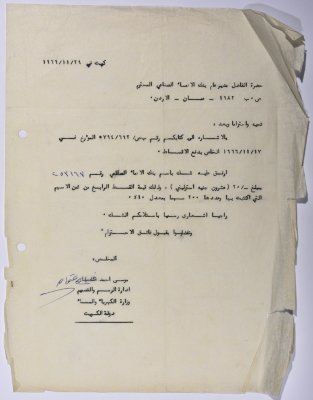 كويت في ٢٩/١٢/١٩٦٦
حضرة الفاضل مدير بنك الانماء الصناعي المحترم
ص٠ب ١٩٨٢ - عمان - الاردن٠
تحية واحتراما وبعد ،
بالاشارة الى كتابكم رقم ٧٦٤/٦٩٢ المؤرخ في
١٩٦٦/١٢/١٧ الخاص بدفع الاقساط ٠
ارفق طيه شيك باسم بنك الانماء الصناعي رقم
بمبلغ -/٢٠ (عشرون جنيه استرليني) ، وذلك قيمة القسط الرابع من ثمن الاسهم
التي اكتتبت بها وعددها ٢٠٠ سهما بمعدل ١٠٪ ٠
راجيا اشعاري رسميا باستلامكم الشيك ٠
وتفضلوا بقبول فائق الاحترام ٠
المخلص،
موسى احمد
ادارة الرسم والتصميم
وزارة الكهرباء والماء
دولة الكويت